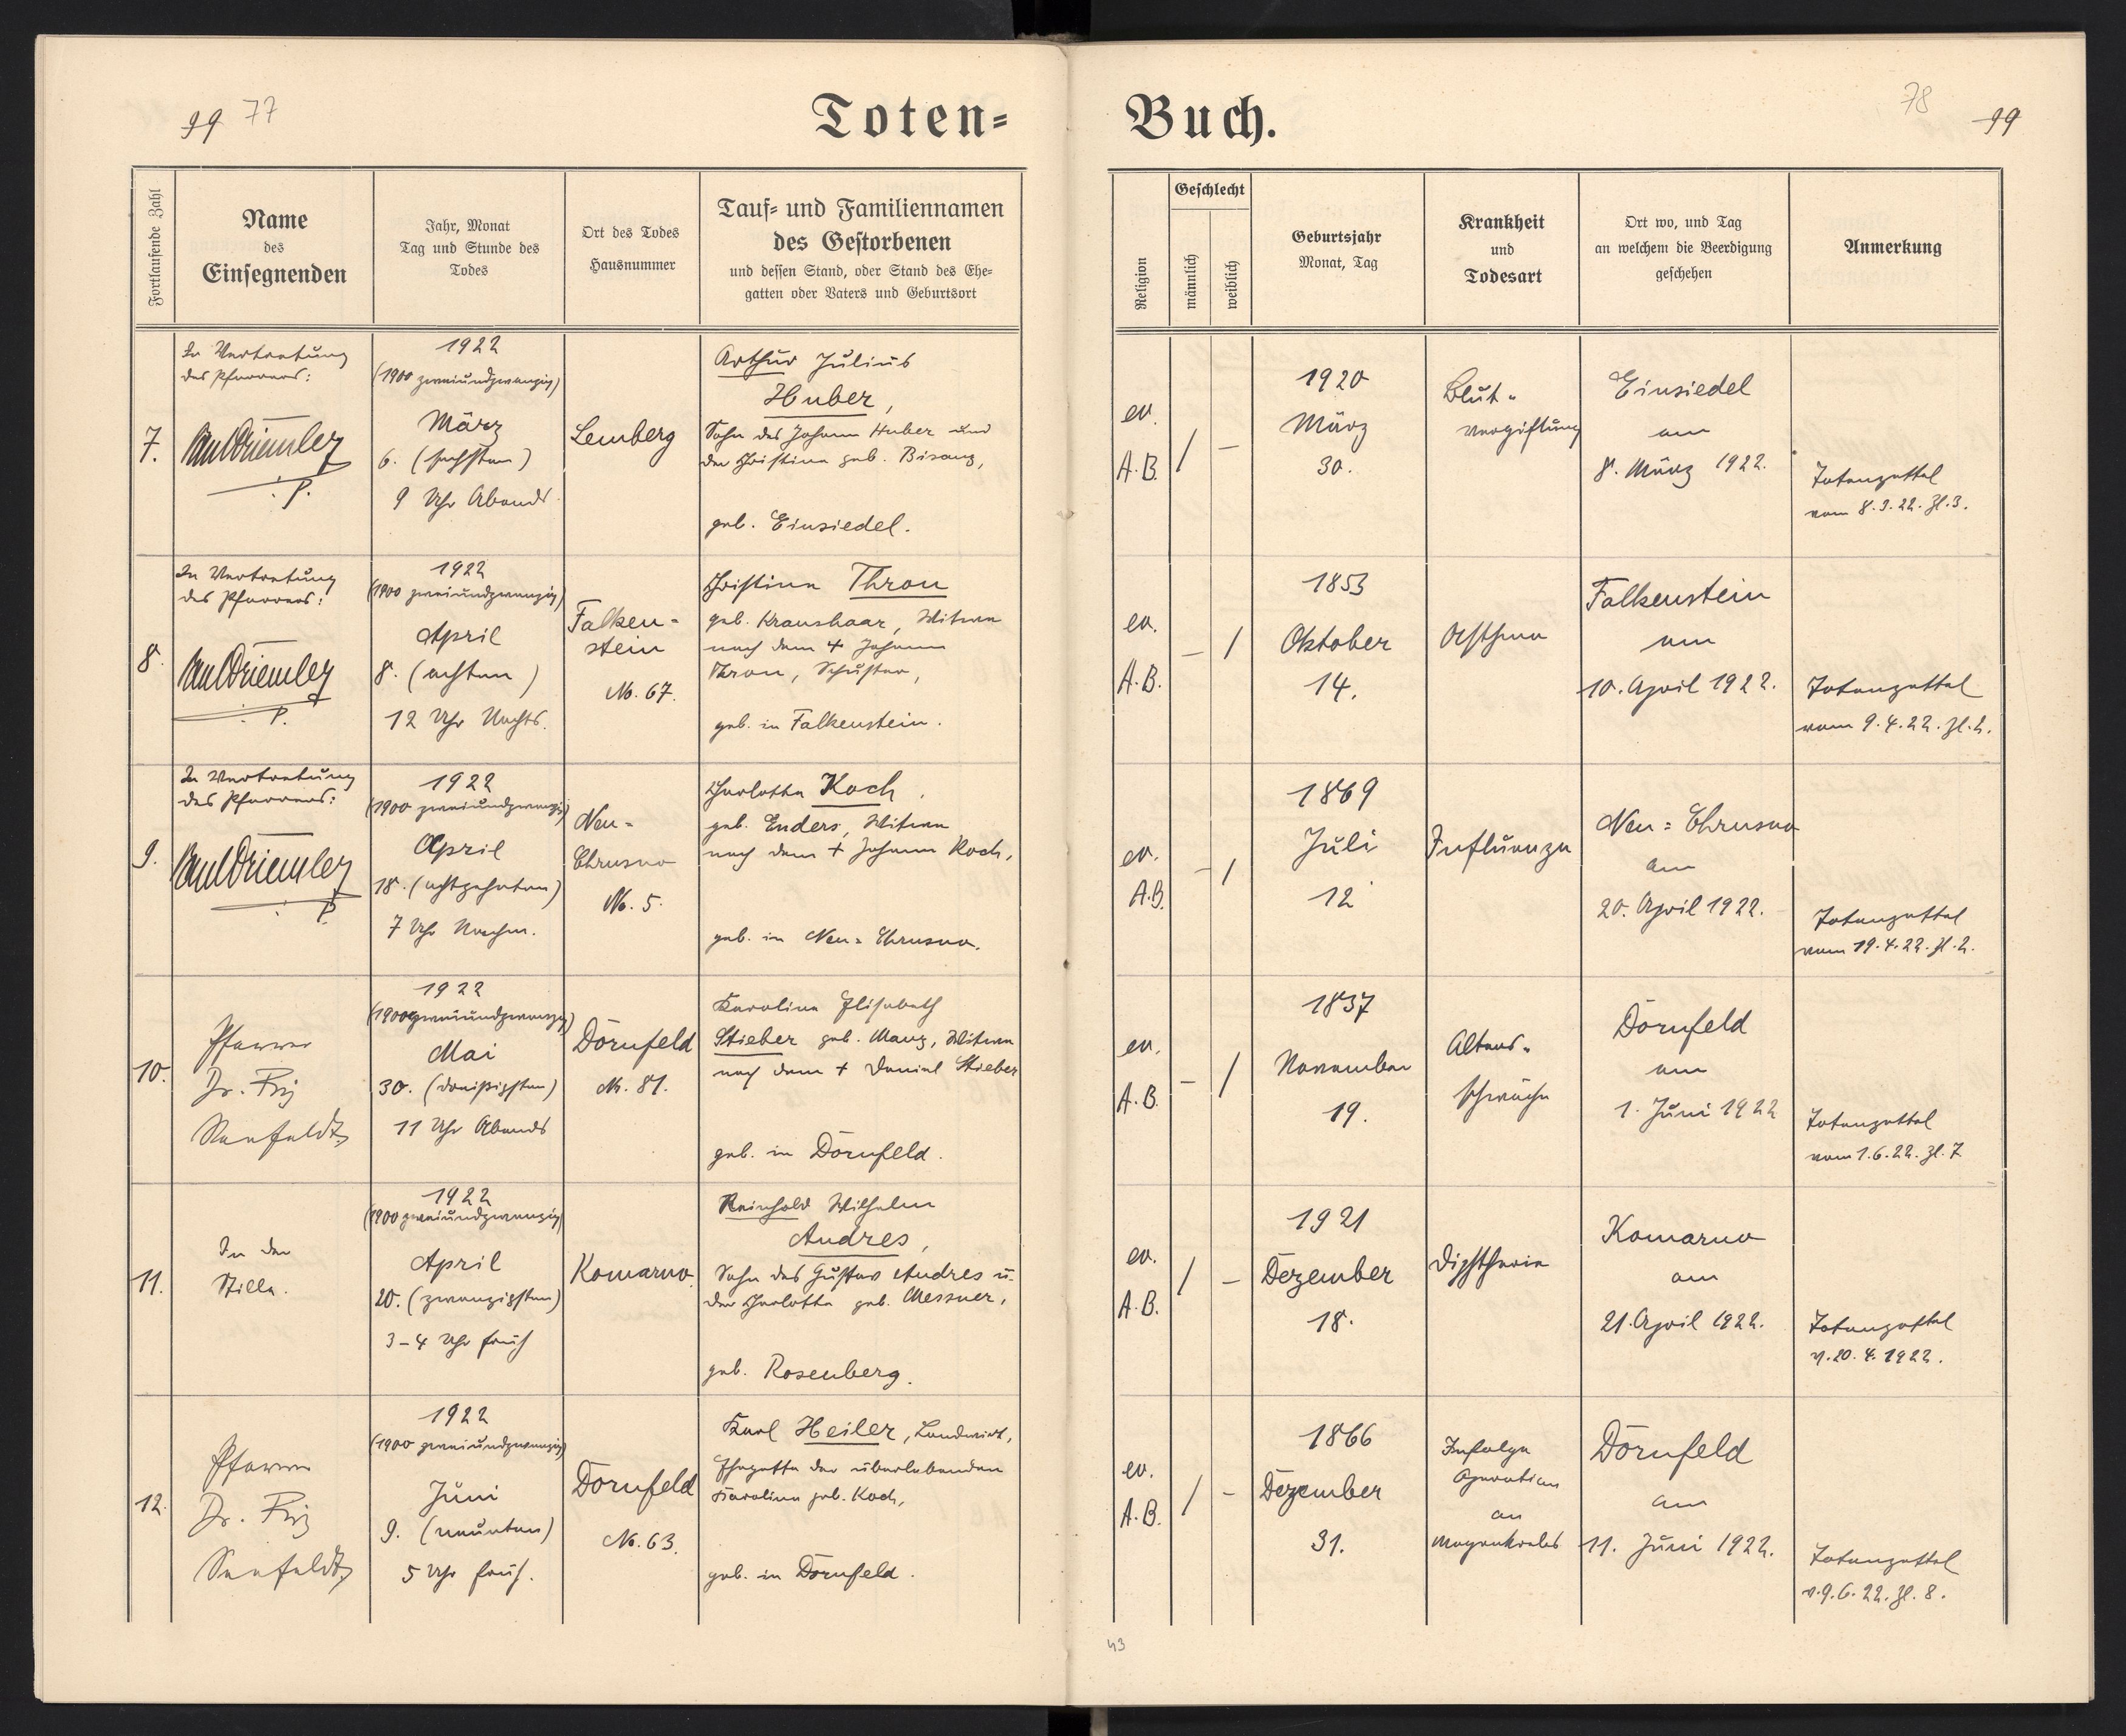 99 77
Toten=
Buch.
78 99
Fortlaufende Zahl
Name
des
Einsegnenden
Jahr, Monat
Tag und Stunde des
Todes
Ort des Todes
Hausnummer
Tauf= und Familiennamen
des Gestorbenen
und dessen Stand, oder Stand des Ehe=
gatten oder Vaters und Geburtsort
Religion
Geschlecht
männlich
weiblich
Geburtsjahr
Monat, Tag
Krankheit
und
Todesart
Ort wo, und Tag
an welchem die Beerdigung
geschehen
Anmerkung
7.
In Vertretung
des Pfarrers:
P.
1922
(1900 zweiundzwanzig)
März
6. (sechsten)
9 Uhr Abends
Lemberg
Arthur Julius
Huber,
Sohn des Johann Huber und
der Christina geb. Bisanz,
geb. Einsiedel.
ev.
A.B.
/ –
1920
März
30.
Blut-
vergiftung
Einsiedel
am
8. März 1922.
Totenzettel
vom 8.3.22. Zl.3.
8.
In Vertretung
des Pfarrers:
P.
1922
(1900 zweiundzwanzig)
April
8. (achten)
12 Uhr Nachts.
Falken=
stein
No. 67.
Christina Thron
geb. Kraushaar, Witwe
nach dem + Johann
Thron, Schuster,
geb. in Falkenstein.
ev.
A.B.
– /
1853
Oktober
14.
Asthma
Falkenstein
am
10. April 1922.
Totenzettel
vom 9.4.22. Zl.2.
9.
In Vertretung
des Pfarrers:
P.
1922
(1900 zweiundzwanzig)
April
18. (achtzehnten)
7 Uhr Nachm.
Neu=
Chrusno
No. 5.
Charlotte Koch,
geb. Enders, Witwe
nach dem + Johann Koch,
geb. in Neu=Chrusno.
ev.
A.B.
– /
1869
Juli
12
Influenza
Neu=Chrusno
am
20. April 1922.
Totenzettel
vom 19.4.22. Zl.2.
10.
Pfarrer
Dr. Friz
Seefeldt
1922
(1900 zweiundzwanzig)
Mai
30. (dreißigsten)
11 Uhr Abends
Dornfeld
No. 81.
Karoline Elisabeth
Stieber geb. Manz, Witwe
nach dem + Daniel Stieber
geb. in Dornfeld.
ev.
A.B.
– /
1837
November
19.
Alters-
schwäche
Dornfeld
am
1. Juni 1922
Totenzettel
vom 1.6.22. Zl.7
11.
In der
Stille.
1922
(1900 zweiundzwanzig)
April
20. (zwanzigsten)
3–4 Uhr früh
Komarno
Reinhold Wilhelm
Andres,
Sohn des Gustav Andres u.
der Charlotte geb. Messner,
geb. Rosenberg.
ev.
A.B.
/ –
1921
Dezember
18.
Diphtherie
Komarno
am
21. April 1922.
Totenzettel
v. 20.4.1922.
12.
Pfarrer
Dr. Friz
Seefeldt
1922
(1900 zweiundzwanzig)
Juni
9. (neunten)
5 Uhr früh.
Dornfeld
No. 63.
Karl Heiler, Landwirt,
Ehegatte der überlebenden
Karoline geb. Koch,
geb. in Dornfeld.
ev.
A.B.
/ –
1866
Dezember
31.
Infolge
Operation
an
Magenkrebs
Dornfeld
am
11. Juni 1922.
Totenzettel
v. 9.6.22. Zl. 8.
43